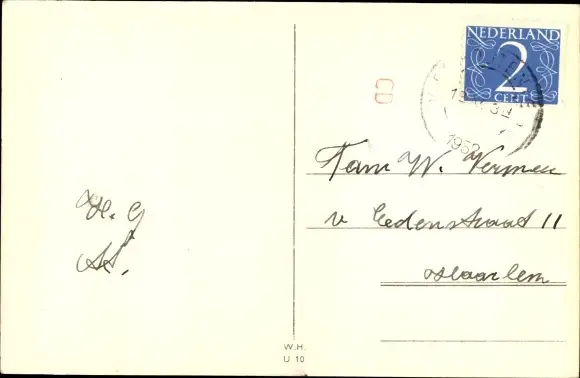 NEDERLAND
2
CENT
1952
CD
Fam W. Vermeu
v Eedenstraat 11
Haarlem
H. G
W.H.
U 10